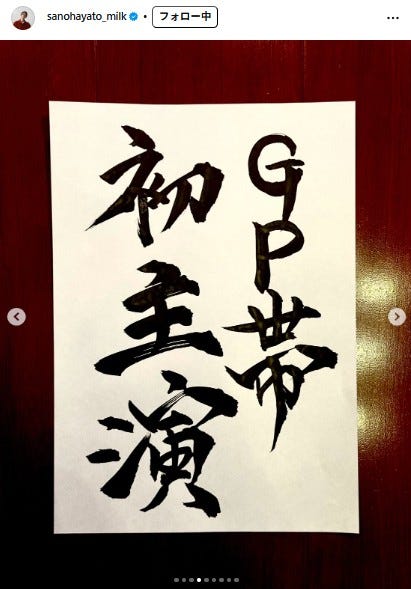 sanohayato_milk • フォロー中
GP帯
初主演